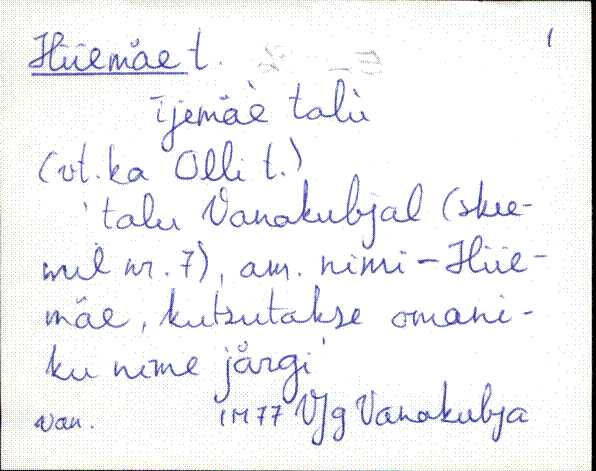 Hiiemäe t. 1
ījemäè talù
(vt. ka Olli t.)
'talu Vanakubjal (skee-
mil nr. 7), am. nimi - Hiie-
mäe, kutsutakse omani-
ku nime järgi'
Van. IM77 VJg Vanakubja